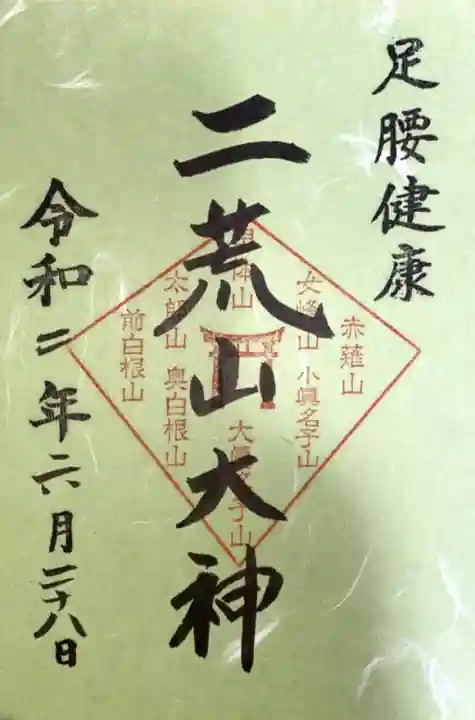 足腰健康
二荒山大神
令和二年六月二十八日
赤薙山
女峰山 小眞名子山
男体山
大眞名子山
太郎山 奥白根山
前白根山